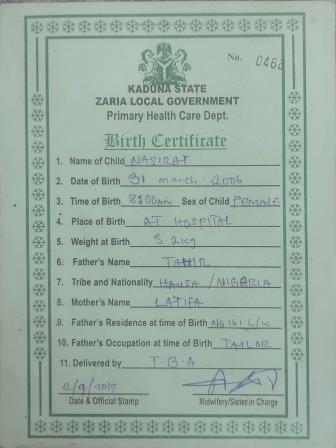 No. 0468
KADUNA STATE
ZARIA LOCAL GOVERNMENT
Primary Health Care Dept.
Birth Certificate
1. Name of Child NASIRAT
2. Date of Birth 31 march 2006
3. Time of Birth 8:00am Sex of Child FEMALE
4. Place of Birth AT HOSPITAL
5. Weight at Birth 3.2kg
6. Father's Name TAHIR
7. Tribe and Nationality HAUSA/NIGERIA
8. Mother's Name LATIFA
9. Father's Residence at time of Birth
10. Father's Occupation at time of Birth TAILOR
11. Delivered by T.B.A
Date & Official Stamp
Midwifery/Sister in Charge